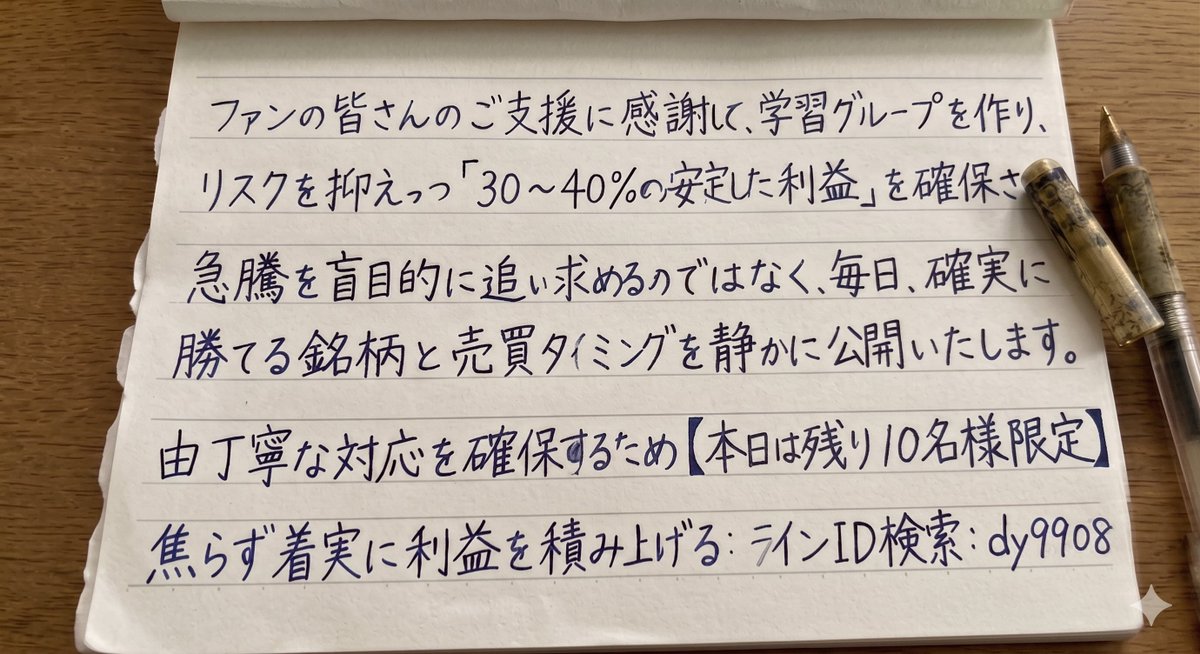 ファンの皆さんのご支援に感謝して、学習グループを作り、
リスクを抑えつつ「30～40%の安定した利益」を確保さ
急騰を盲目的に追い求めるのではなく、毎日、確実に
勝てる銘柄と売買タイミングを静かに公開いたします。
由丁寧な対応を確保するため【本日は残り10名様限定】
焦らず着実に利益を積み上げる：ラインID検索：dy9908